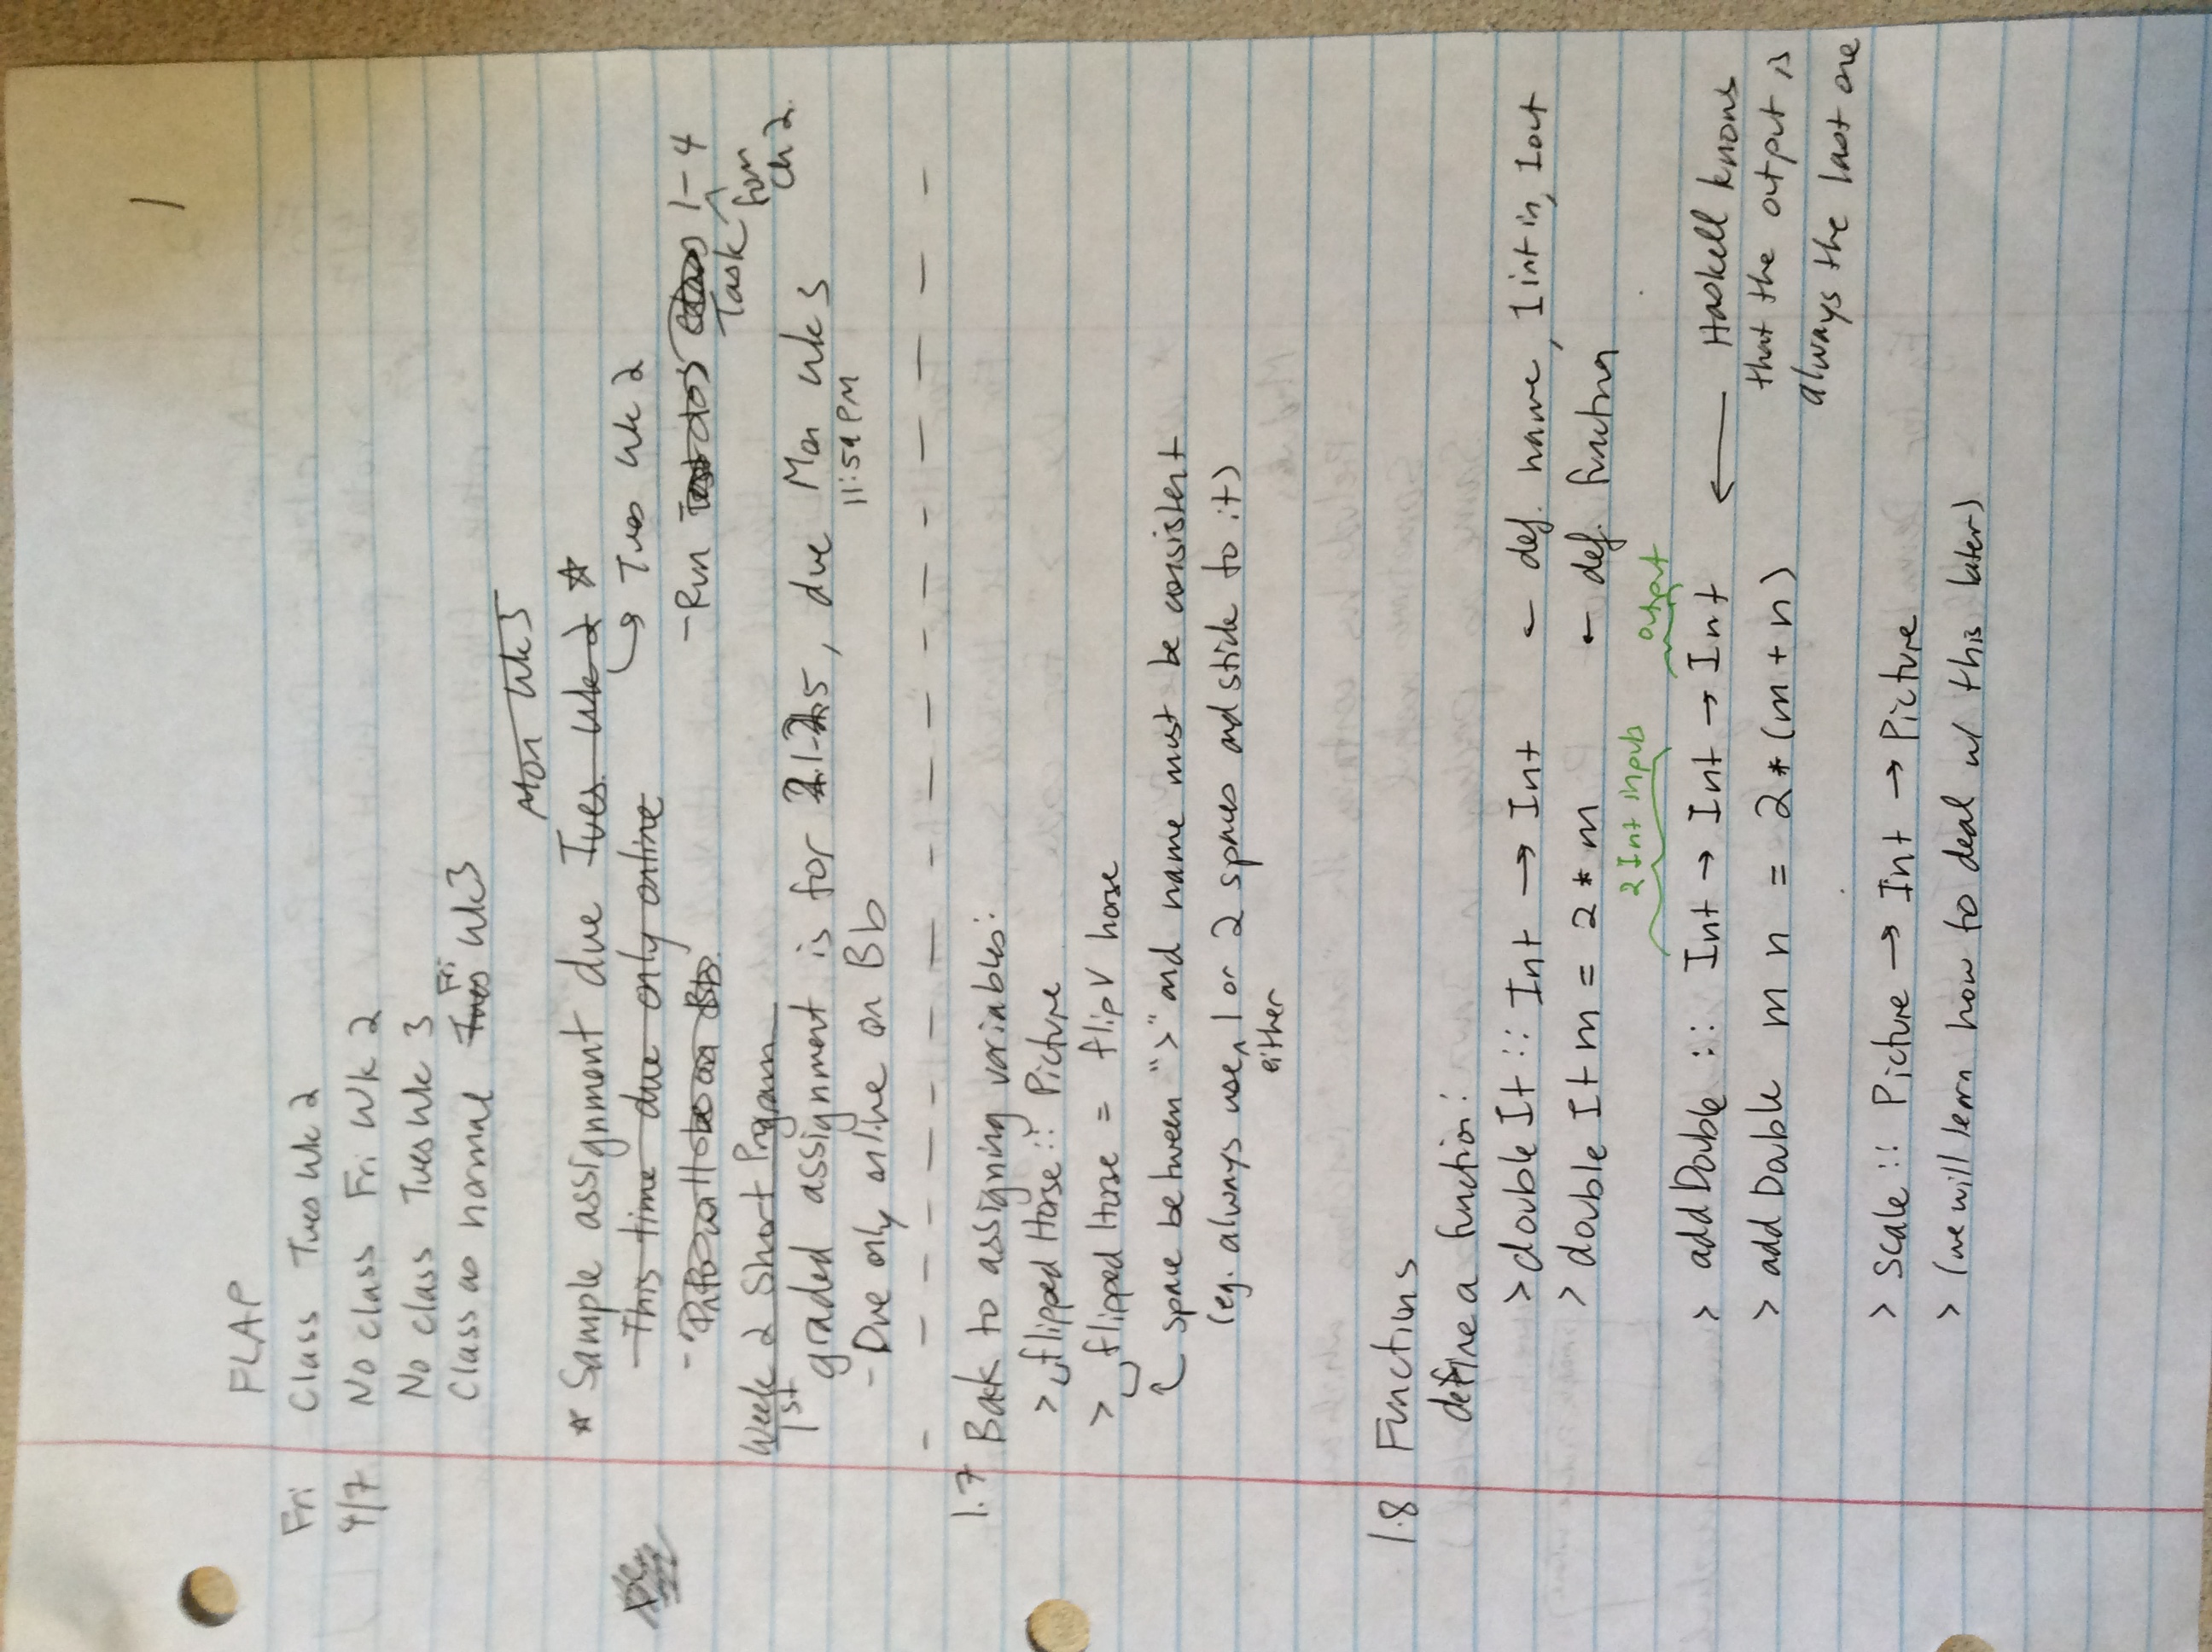 1
FLAP
Fri Class Tues Wk 2
4/7 No class Fri Wk 2
No class Tues Wk 3
Class as normal Tues Fri Wk 3
Mon Wk 3
☆ Sample assignment due Tues. Wk 2 ☆
This time due only online
→ Tues Wk 2
- Info will be on Bb.
- Run 1-4
Task
from
Ch 2.
Week 2 Short Prgram
1st graded assignment is for 2.1-2.5, due Mon Wk 3
11:59 PM
- Due only online on Bb
1.7 Back to assigning variables:
> flipped Horse :: Picture
> flipped Horse = flipV horse
space between ">" and name must be consistent
(eg. always use ^ 1 or 2 spaces and stick to it)
either
1.8 Functions
define a function:
> double It :: Int → Int ← def. name, 1 int in, 1 out
> double It m = 2 * m ← def. function
2 Int inputs output
> add Double :: Int → Int → Int ← Haskell knows
that the output is
always the last one
> add Double m n = 2 * (m + n)
> scale :: Picture → Int → Picture
> (we will learn how to deal w/ this later)